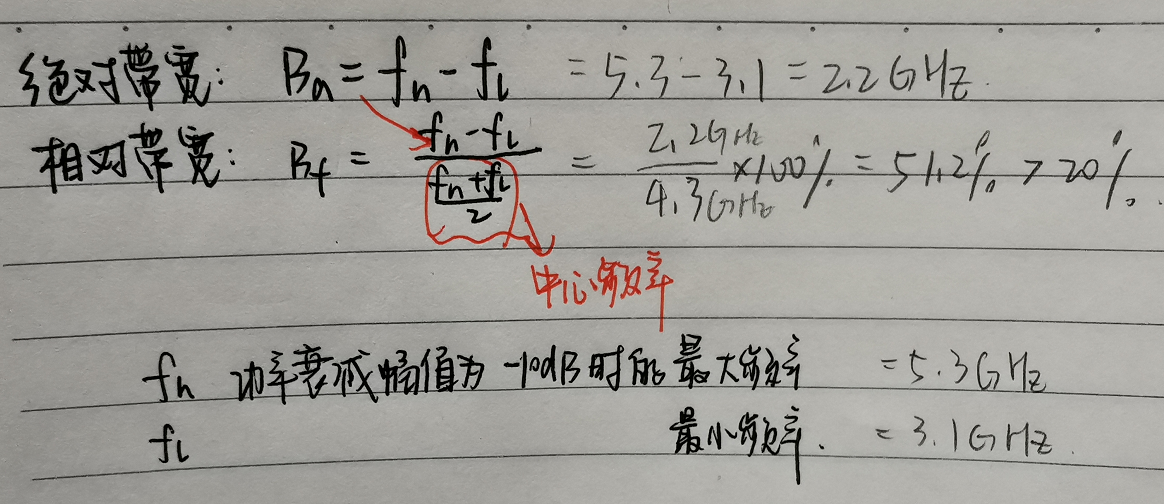 绝对带宽: Ba = fh - fl = 5.3 - 3.1 = 2.2GHz.
相对带宽: Bf = (fh - fl) / ((fh + fl) / 2) = 2.2GHz / 4.3GHz × 100% = 51.2% > 20%.
中心频率
fh 功率衰减幅值为 -10dB 时的最大频率 = 5.3GHz
fl 最小频率. = 3.1GHz.